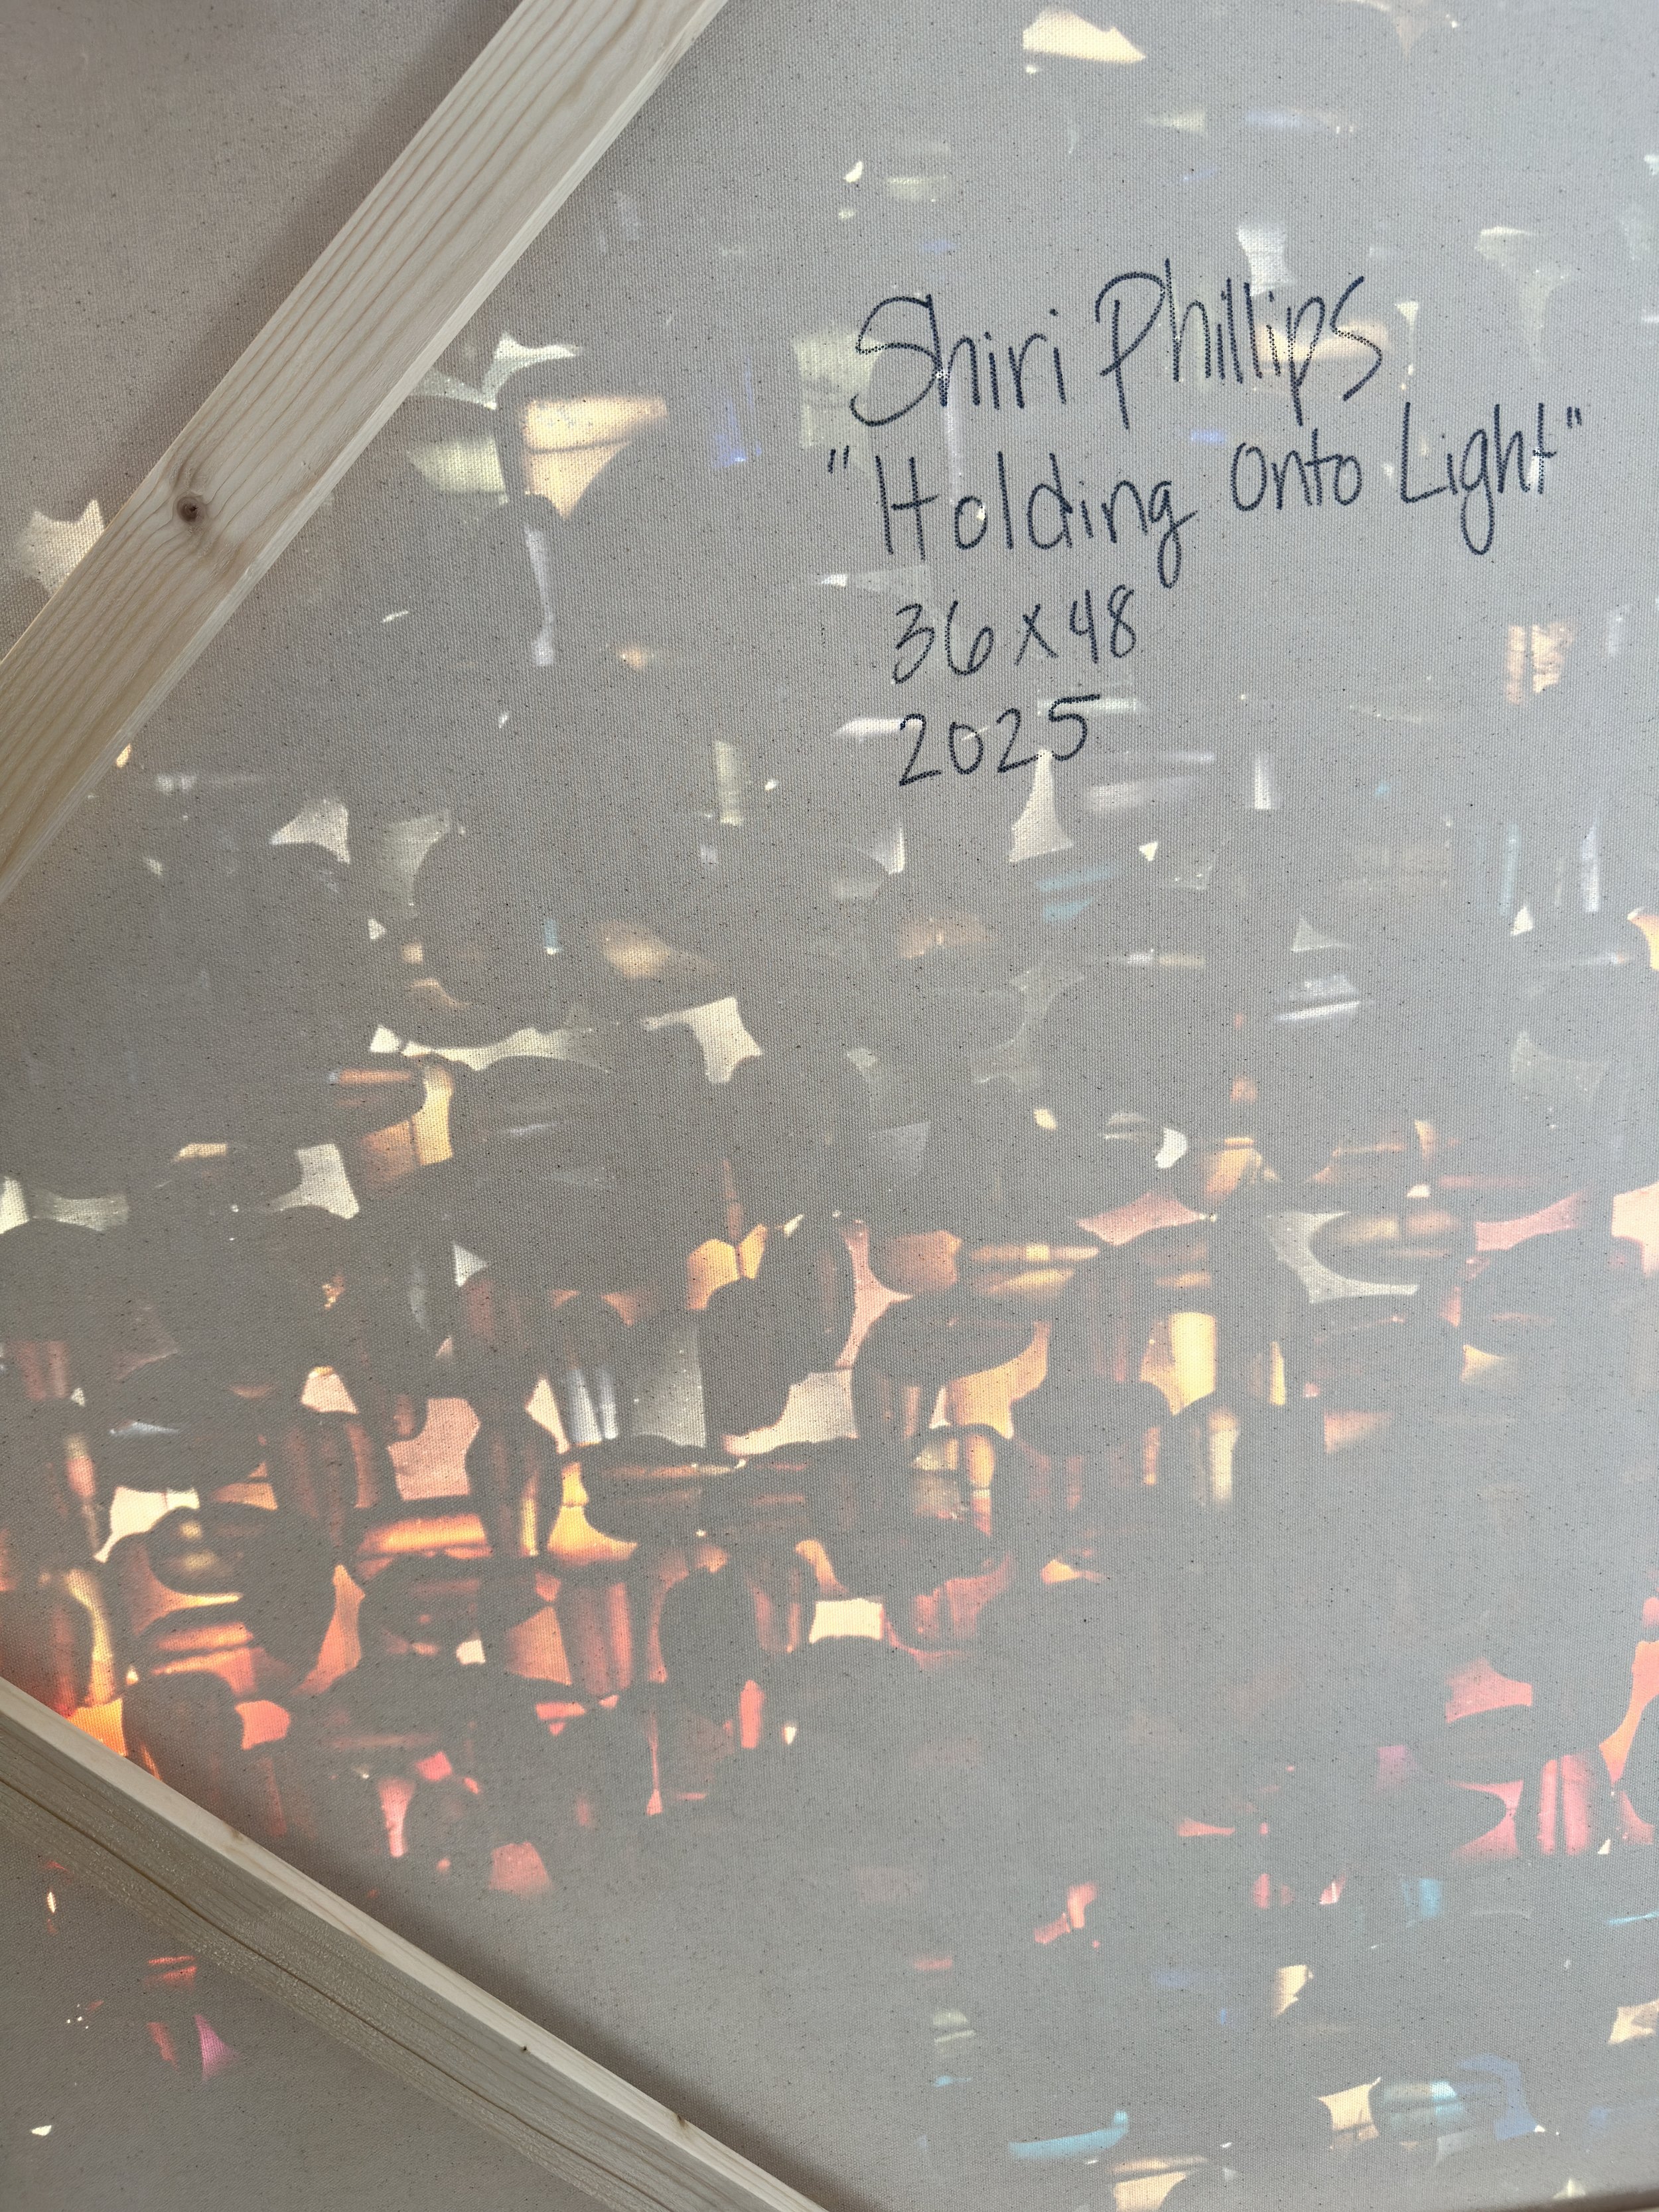 Shiri Phillips
"Holding Onto Light"
36x48
2025